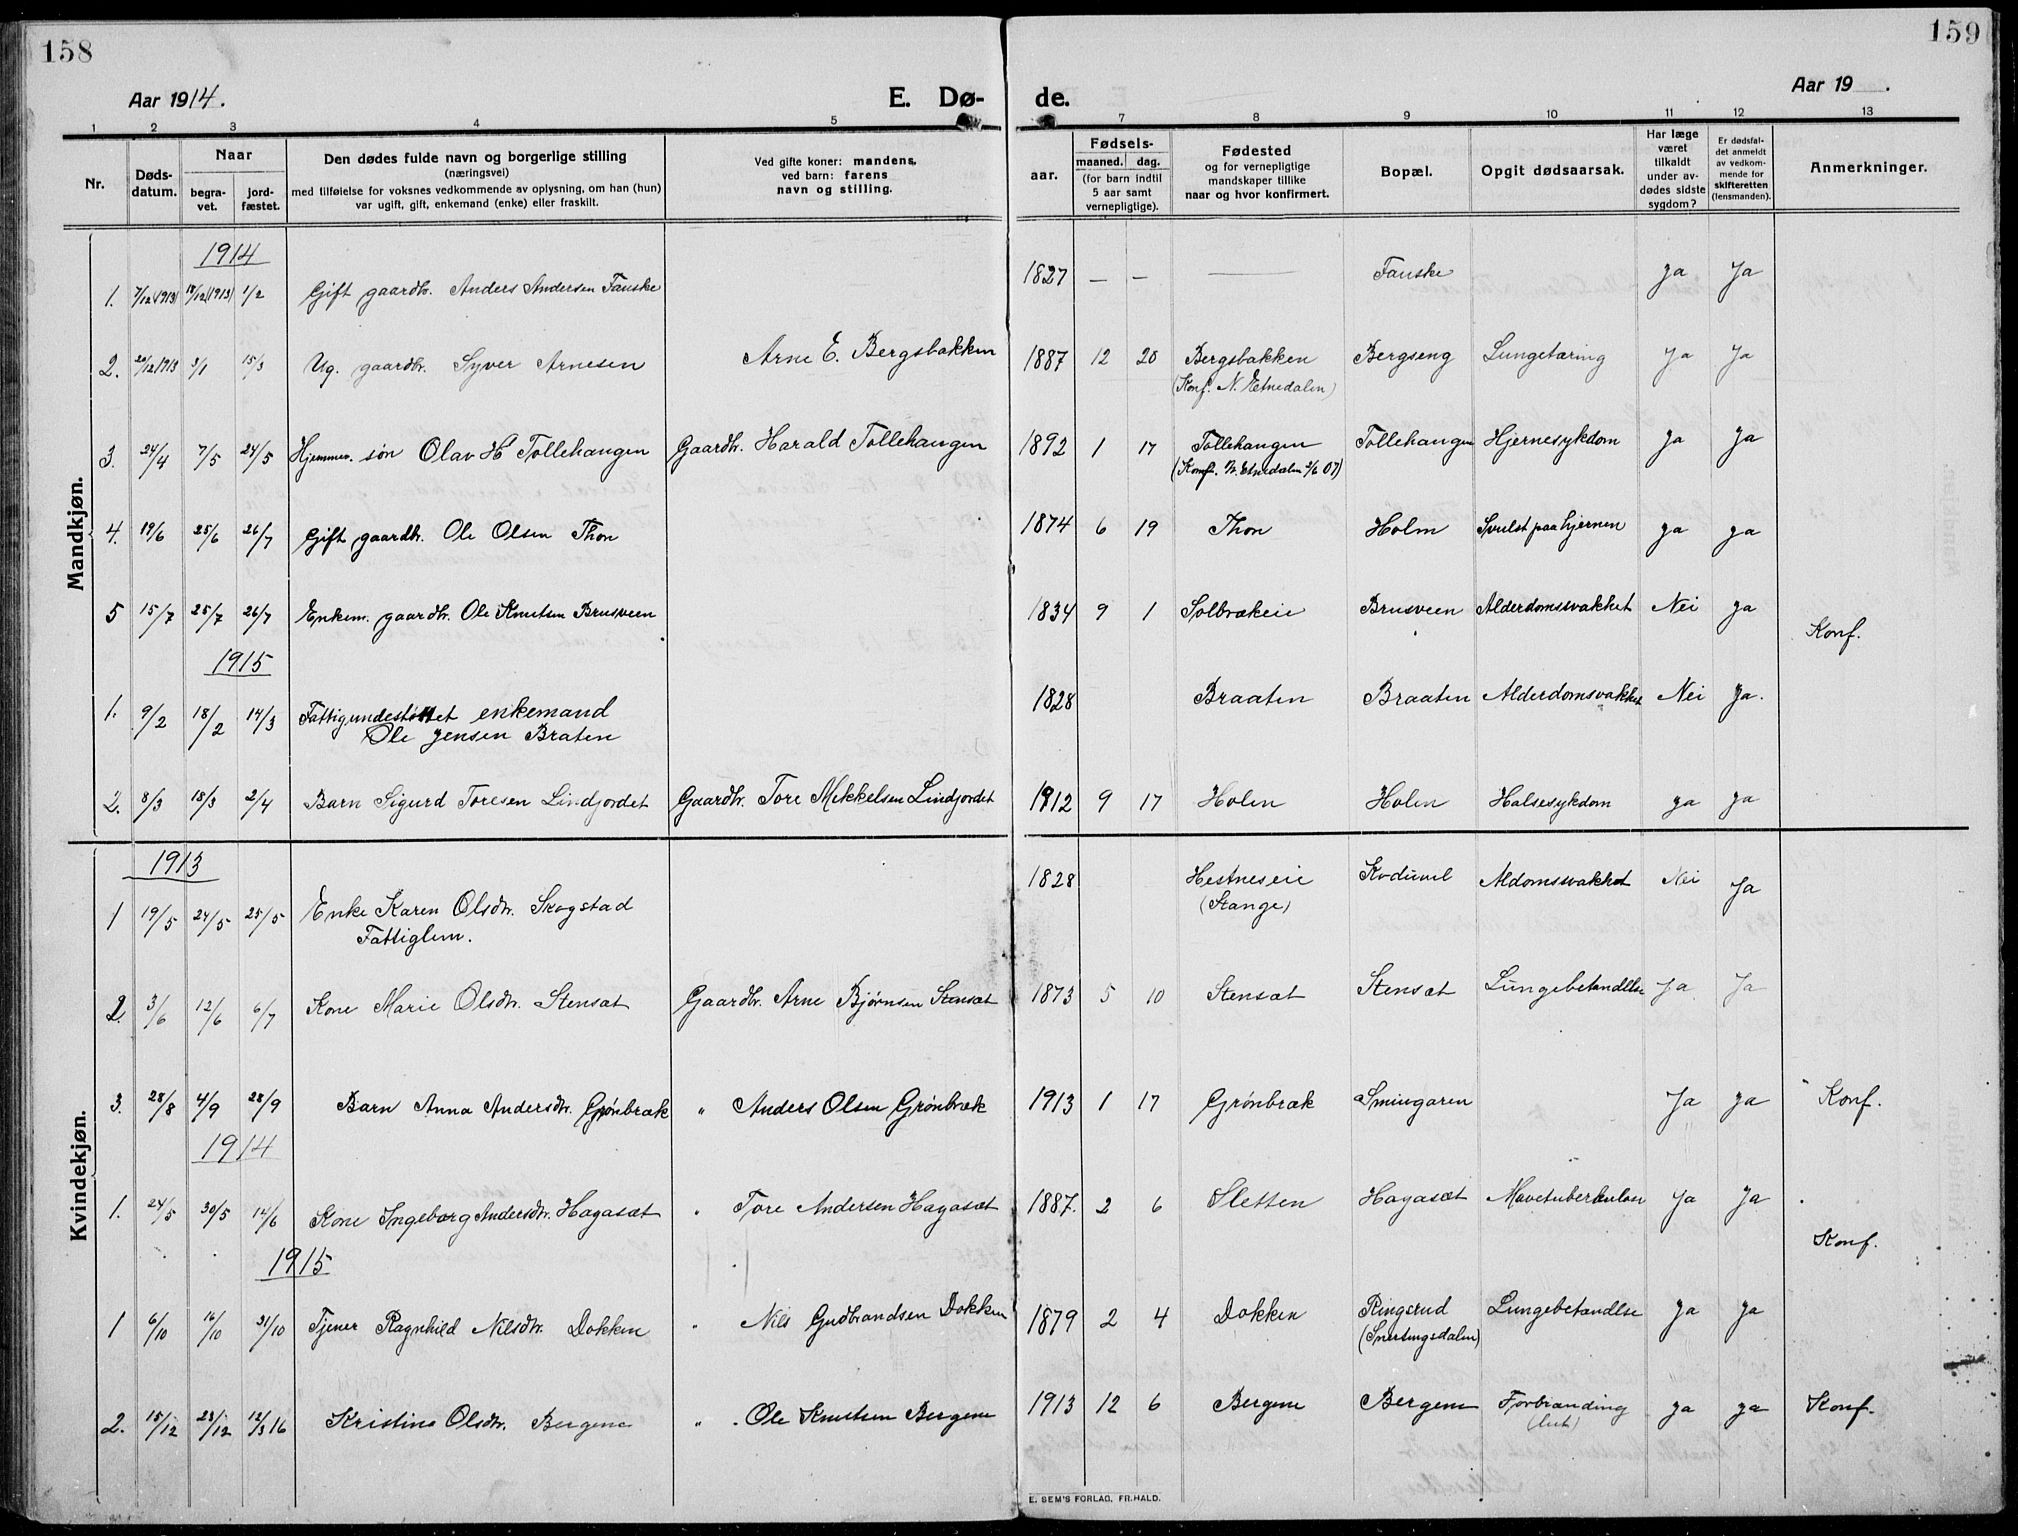 158
159
Aar 1914.
E. Dø-
de.
Aar 19 .
1 2 3 4 5 7 8 9 10 11 12 13
Nr.
Døds-
datum.
Naar
begra-
vet.
jord-
fæstet.
Den dødes fulde navn og borgerlige stilling
(næringsvei)
med tilføielse for voksnes vedkommende av oplysning, om han (hun)
var ugift, gift, enkemand (enke) eller fraskilt.
Ved gifte koner: mandens,
ved barn: farens
navn og stilling.
aar.
Fødsels-
maaned. dag.
(for barn indtil
5 aar samt
vernepligtige).
Fødested
og for vernepligtige
mandskaper tillike
naar og hvor konfirmert.
Bopæl.
Opgit dødsaarsak.
Har læge
været
tilkaldt
under av-
dødes sidste
sygdom?
Er dødsfal-
det anmeldt
av vedkom-
mende for
skifteretten
(lensmanden).
Anmerkninger.
Mandkjøn.
1914
1. 7/12(1913) 18/12(1913) 1/2 Gift gaardbr. Anders Andersen Fauske 1827 — — — Fauske Ja Ja
2. 20/12 1913 3/1 15/3 Ug. gaardbr. Syver Arnesen Arne E. Bergsbakken 1887 12 20 Bergsbakken Bergseng Lungetæring Ja Ja
(Konf. N. Etnedalen)
3. 24/4 7/5 24/5 Hjemmev. søn Olav H Tollehaugen Gaardbr. Harald Tollehaugen 1892 1 17 Tollehaugen Tollehaugen Hjernesykdom Ja Ja
(Konf. N. Etnedalen 2/6 07)
4. 19/6 25/6 26/7 Gift gaardbr. Ole Olsen Thon 1874 6 19 Thon Holm Svulst paa hjernen Ja Ja
5 15/7 25/7 26/7 Enkem. gaardbr. Ole Knutsen Brusveen 1834 9 1 Solbrækeie Brusveen Alderdomssvakhet Nei Ja
Konf.
1915
1. 9/2 18/2 14/3 Fattigundestøttet enkemand 1828 Braaten Braaten Alderdomsvakhet Nei Ja.
Ole Jensen Braten
2. 8/3 18/3 2/4 Barn Sigurd Toresen Lindjordet Gaardbr. Tore Mikkelsen Lindjordet 1912 9 17 Holen Holen Halsesykdom Ja Ja
Kvindekjøn.
1913
1 19/5 24/5 25/5 Enke Karen Olsdtr. Skogstad 1828 Hestneseie Aldomssvakhet Nei Ja
Fattiglem. (Stange)
2. 3/6 12/6 6/7 Kone Marie Olsdtr. Stensæt Gaardbr. Arne Bjørnsen Stensæt 1873 5 10 Stensæt Stensæt Lungebetændlse Ja Ja
3. 28/8 4/9 28/9 Barn Anna Andersdtr. Grønbræk " Anders Olsen Grønbræk 1913 1 17 Grønbræk Smiugaren Ja Ja Konf.
1914
1. 24/5 30/5 14/6 Kone Ingeborg Andersdtr. Hagasæt " Tore Andersen Hagasæt 1887. 2 6 Sletten Hagasæt Mavetuberkulose Ja Ja
Konf.
1915
1 6/10 16/10 31/10 Tjener Ragnhild Nilsdtr. Dokken " Nils Gudbrandsen Dokken 1879 2 4 Dokken Ringsrud Lungebetændlse Ja Ja
(Snertingsdalen)
2. 15/12 23/12 12/3 16 Kristine Olsdtr. Bergene " Ole Knutsen Bergene 1913 12 6 Bergene Bergene Forbrænding Ja Ja Konf.
(lut)
E. SEM'S FORLAG, FR.HALD.